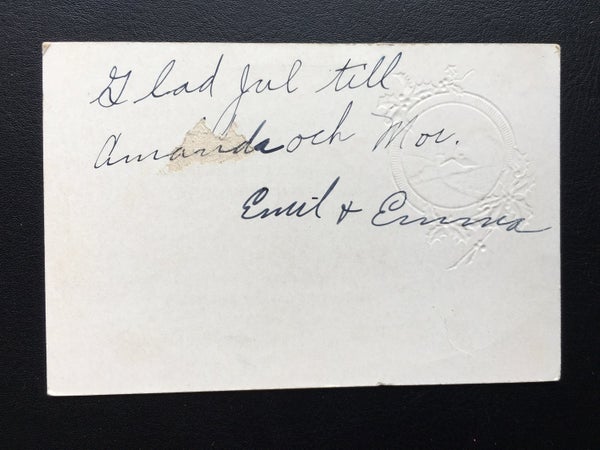 Glad Jul till
Amanda och Mor.
Emil & Emma